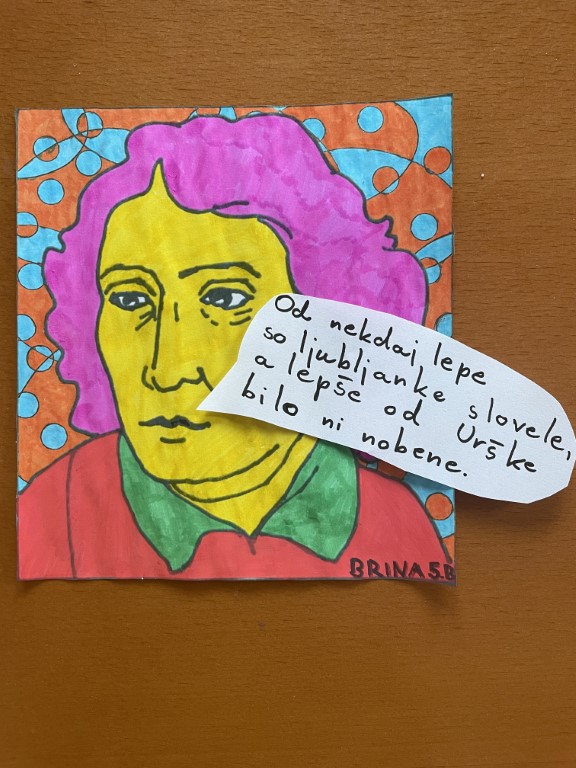 Od nekdaj lepe
so ljubljanke slovele,
a lepše od Urške
bilo ni nobene.
BRINA 5.B